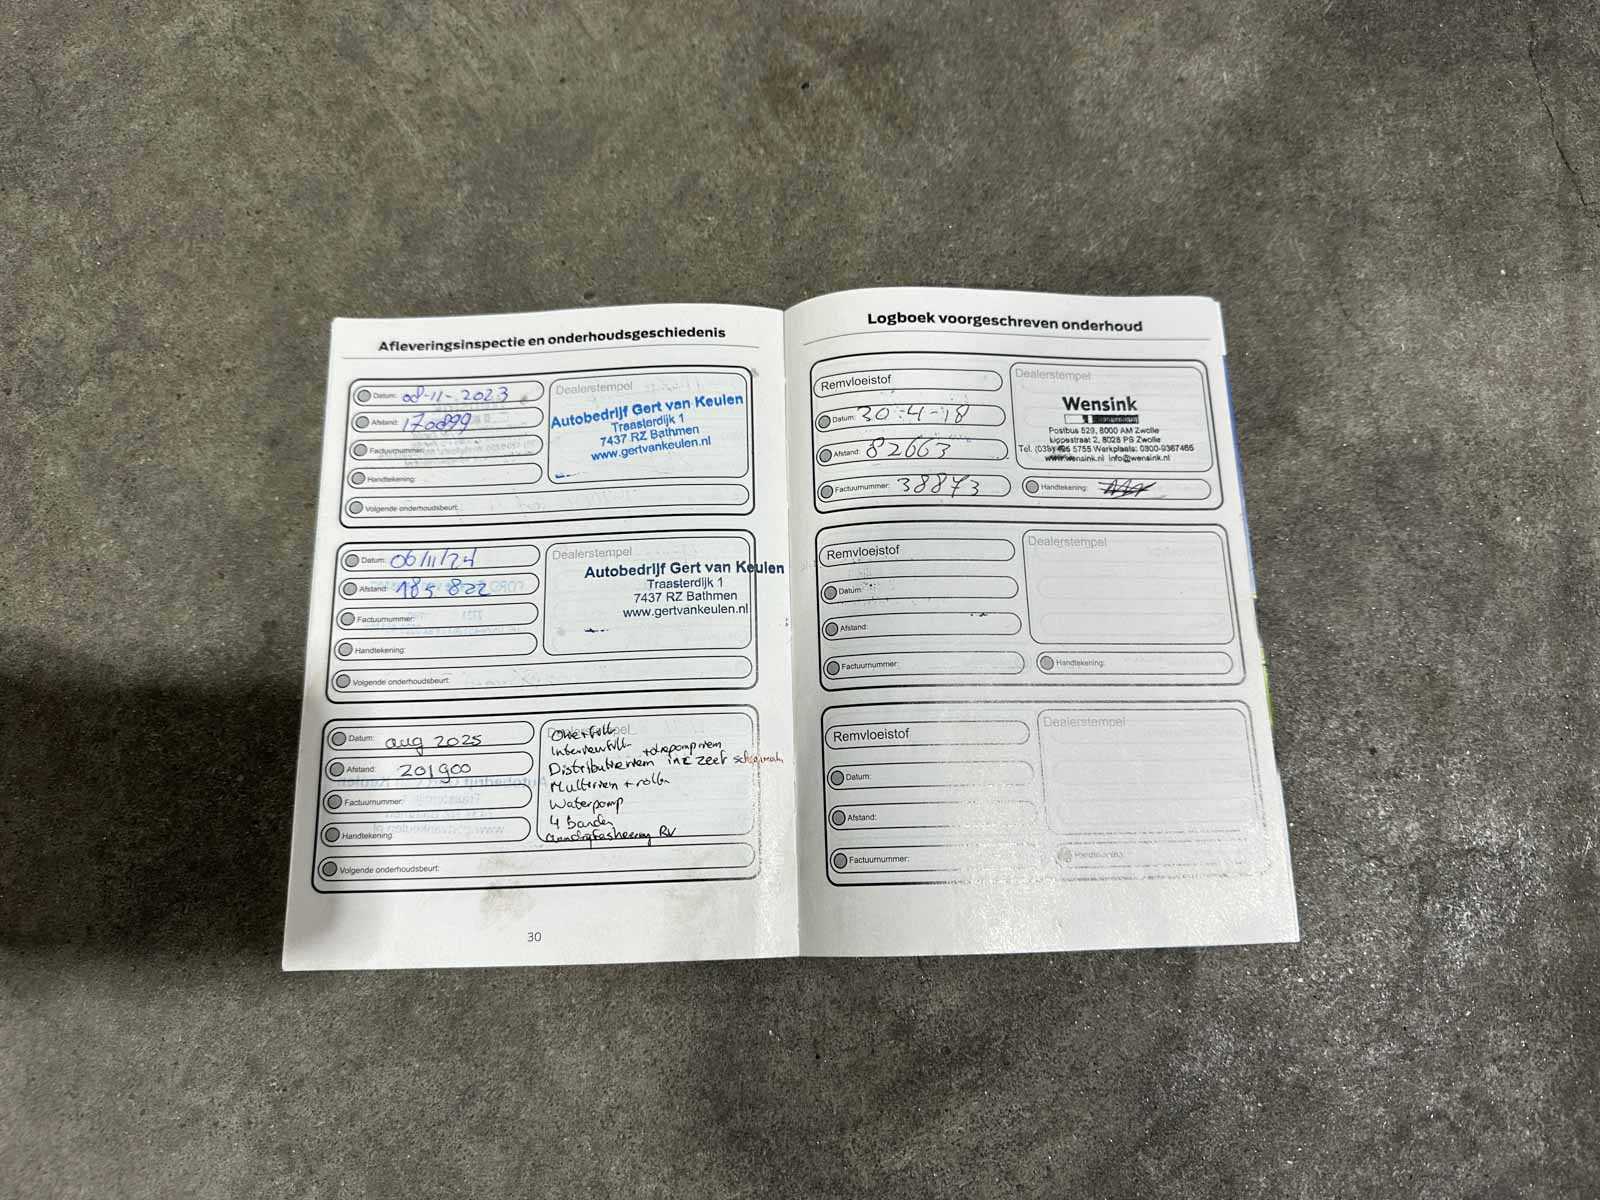 Afleveringsinspectie en onderhoudsgeschiedenis
Datum: 08-11-2023
Afstand: 170899
Factuurnummer:
Handtekening:
Volgende onderhoudsbeurt:
Dealerstempel
Autobedrijf Gert van Keulen
Traasterdijk 1
7437 RZ Bathmen
www.gertvankeulen.nl
Datum: 06/11/24
Afstand: 185 822
Factuurnummer:
Handtekening:
Volgende onderhoudsbeurt:
Dealerstempel
Autobedrijf Gert van Keulen
Traasterdijk 1
7437 RZ Bathmen
www.gertvankeulen.nl
Datum: aug 2025
Afstand: 201900
Factuurnummer:
Handtekening:
Volgende onderhoudsbeurt:
Dealerstempel
Olie + filter
Interieurfilter
Distributieriem + oliepompriem ink zeef
Multiriem + rollen
Waterpomp
4 Banden
RV
30
Logboek voorgeschreven onderhoud
Remvloeistof
Datum: 30-4-18
Afstand: 82663
Factuurnummer: 38873
Dealerstempel
Wensink
Postbus 529, 8000 AM Zwolle
2, 8028 PS Zwolle
5755 Werkplaats: 0900-9367465
info@wensink.nl
Handtekening:
Remvloeistof
Datum:
Afstand:
Factuurnummer:
Dealerstempel
Handtekening:
Remvloeistof
Datum:
Afstand:
Factuurnummer:
Dealerstempel
Handtekening: